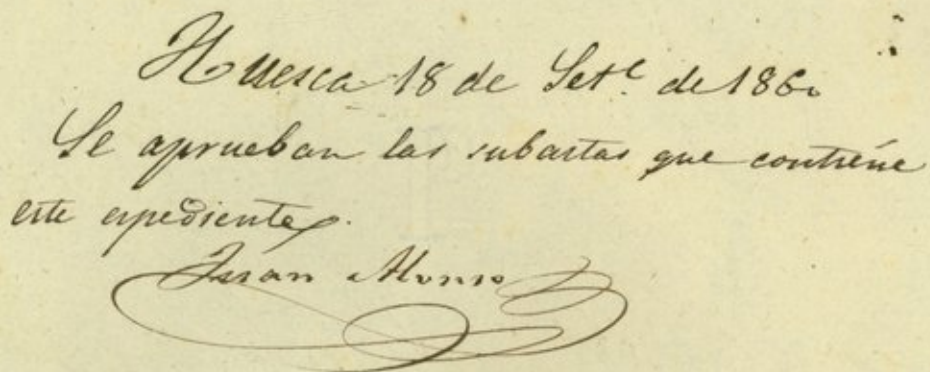 Huesca 18 de Set.e de 1860
Se aprueban las subastas que contiene
este espediente.
Juan Alonso